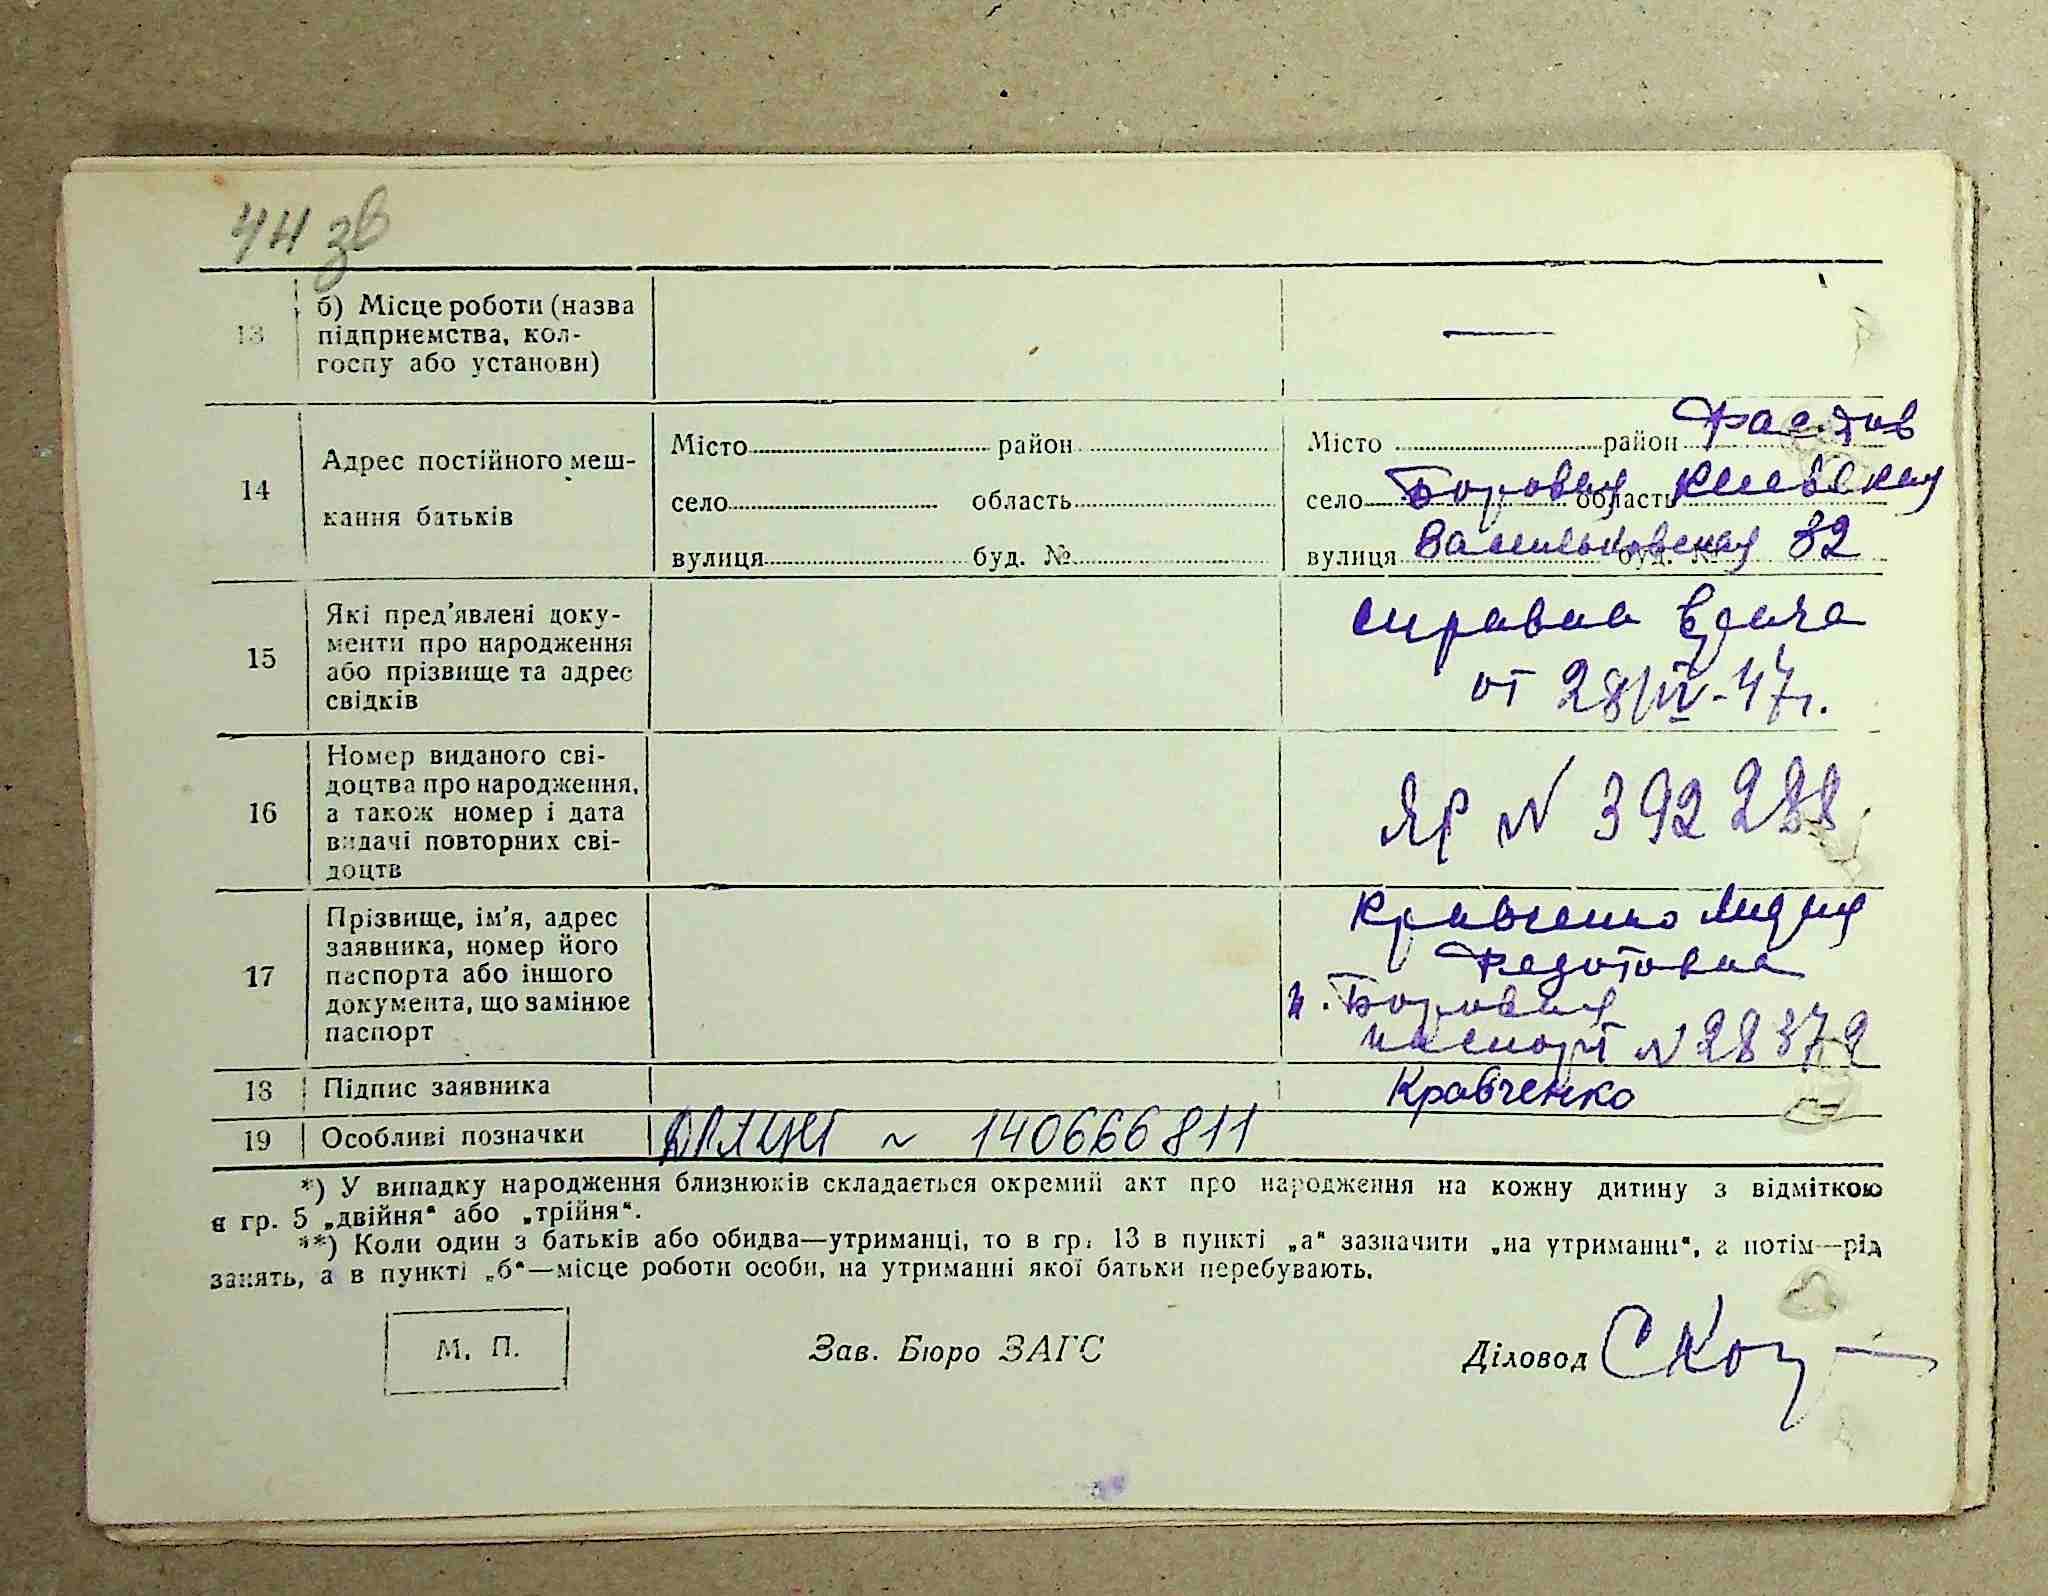 44 зв
13 б) Місце роботи (назва
підприємства, кол-
госпу або установи)
—
14 Адрес постійного меш-
кання батьків
Місто район
село область
вулиця буд. №
Місто район Фастов
село Боровая область Киевская
вулиця Васильковская буд. № 32
15 Які пред'явлені доку-
менти про народження
або прізвище та адрес
свідків
справка врача
от 28/IV-47г.
16 Номер виданого сві-
доцтва про народження,
а також номер і дата
видачі повторних сві-
доцтв
ЯР N 392288
17 Прізвище, ім'я, адрес
заявника, номер його
паспорта або іншого
документа, що замінює
паспорт
Кравченко Лидия
Федотовна
Боровая
паспорт N 28372
18 Підпис заявника Кравченко
19 Особливі позначки ДРАЦСГ ~ 140666811
*) У випадку народження близнюків складається окремий акт про народження на кожну дитину з відміткою
в гр. 5 „двійня“ або „трійня“.
**) Коли один з батьків або обидва—утриманці, то в гр. 13 в пункті „а“ зазначити „на утриманні“, а потім—рід
занять, а в пункті „б“—місце роботи особи, на утриманні якої батьки перебувають.
М. П.
Зав. Бюро ЗАГС
Діловод